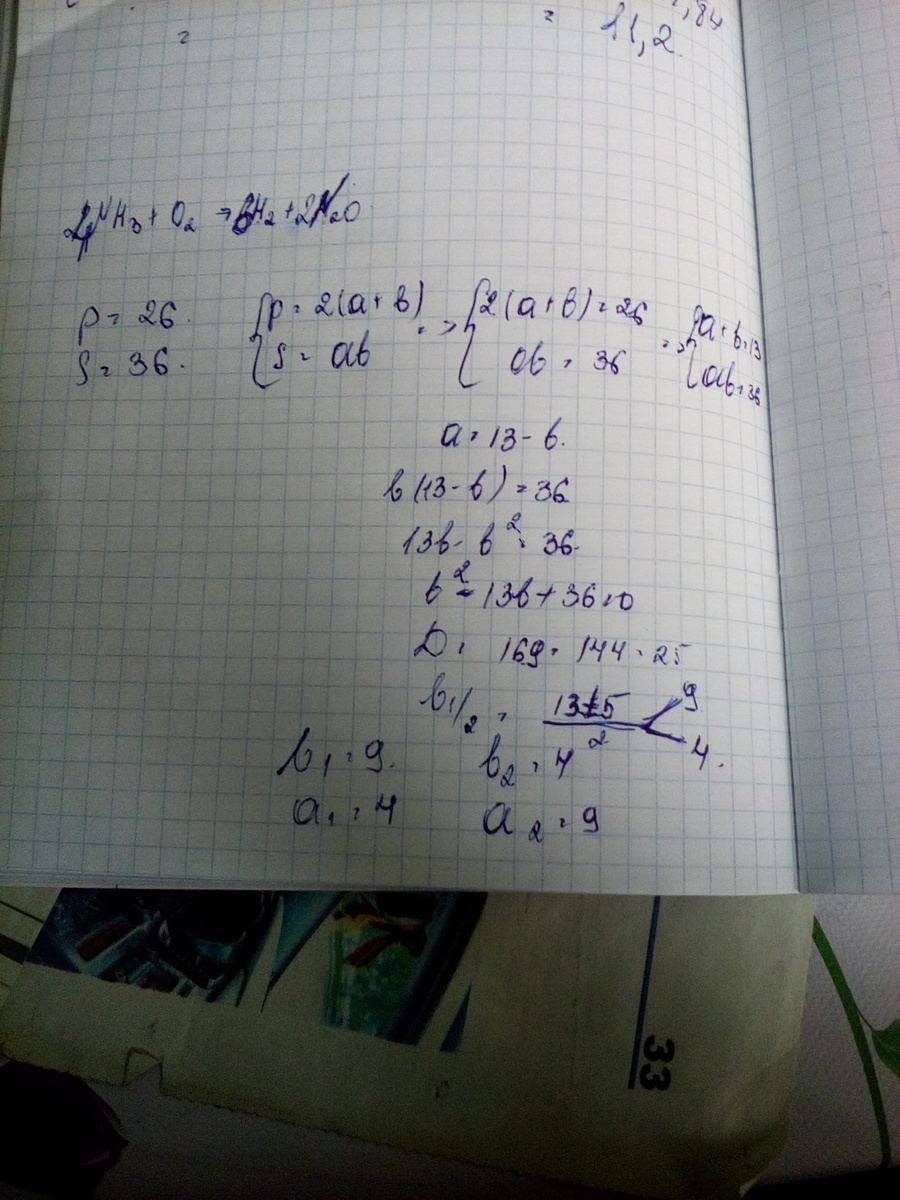 = ,84
= 11,2.
NH3 + O2 → H2 + 2N2O
p = 26. {p = 2(a+b) => {2(a+b) = 26 => {a+b=13
S = 36. S = ab ab = 36 ab=36
a = 13 - b.
b(13 - b) = 36
13b - b² = 36.
b² - 13b + 36 = 0
D = 169 - 144 = 25
b1/2 = 13±5/2 < 9 4.
b1 = 9. b2 = 4
a1 = 4 a2 = 9
33